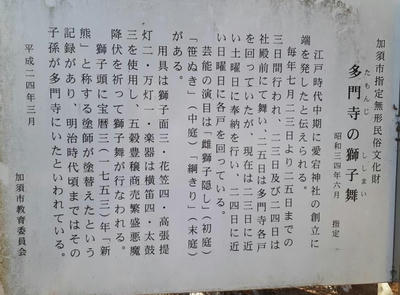 加須市指定無形民俗文化財
多門寺の獅子舞
たもんじ ししまい
昭和三四年六月 指定
江戸時代中期に愛宕神社の創立に
端を発したと伝えられる。
毎年七月二三日より二五日までの
三日間行われ、二三日及び二四日は
社殿前にて舞い、二五日は多門寺各戸
を回っていたが、現在は二三日に近
い土曜日に奉納を行い、二四日に近
い日曜日に各戸を回っている。
芸能の演目は「雌獅子隠し」(初庭)
「笹ぬき」(中庭)「綱きり」(末庭)
用具は獅子面三・花笠四・高張提
灯二・万灯一・楽器は横笛四・太鼓
三を使用し、五穀豊穣商売繁盛悪魔
降伏を祈って獅子舞が行なわれる。
獅子頭に宝暦三(一七五三)年「新
熊」と称する塗師が塗替えたという
記録があり、明治時代頃まではその
子孫が多門寺にいたといわれている。
平成二四年三月
加須市教育委員会